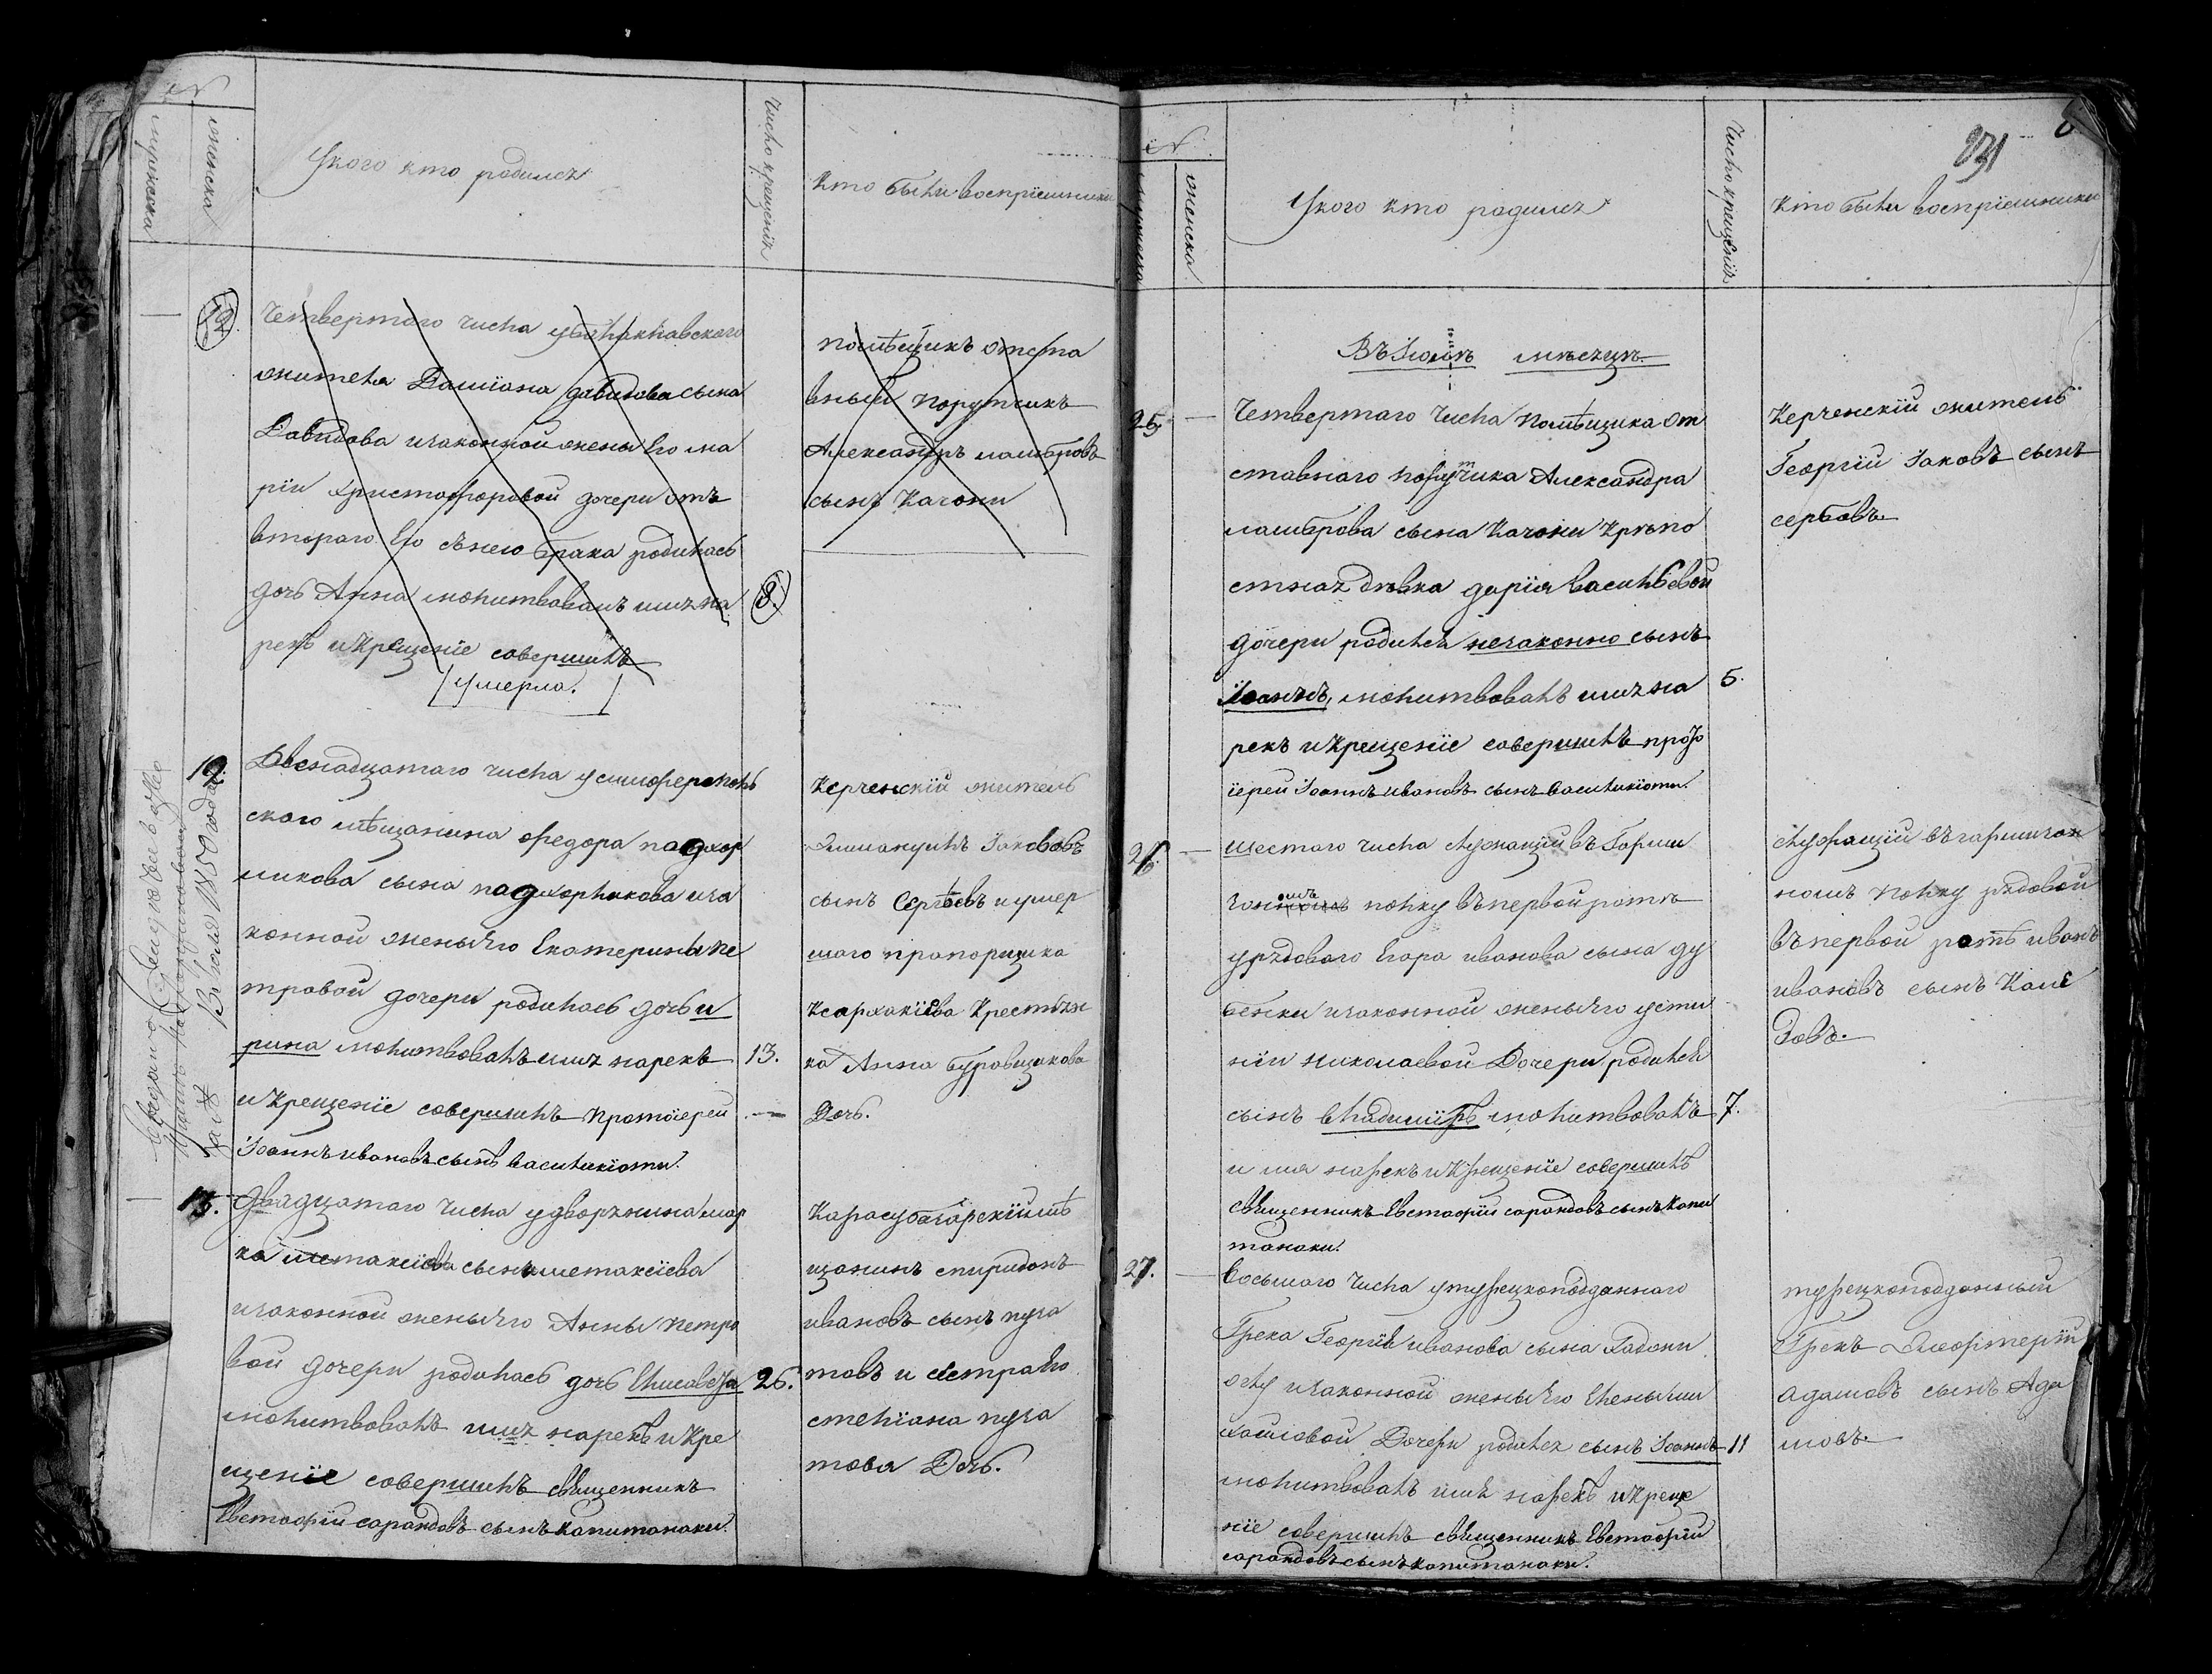 №
мужеска
женска
У кого кто родился
Число крещенія
Кто были воспріемники
12.
Четвертаго числа у балаклавскаго
жителя Даміана давидова сына
Давидова и законной жены его ма
ріи христофоровой дочери отъ
втораго его с нею брака родилась
дочь Анна молитвовалъ имя на
рекъ и крещеніе совершилъ
умерла.
8.
помѣщикъ отста
вный порутчикъ
Александръ ламбровъ
сынъ Качони
12.
Двенадцатаго числа у симферополь
скаго мѣщанина федора
сына и за
конной жены его Екатерины пе
тровой дочери родилась дочь и
рина молитвовалъ имя нарекъ
и крещеніе совершилъ протоіерей
Іоаннъ ивановъ сынъ василикіоти.
13.
Керченскій житель
Іаковъ
сынъ Сергѣевъ и умер
шаго прапорщика
Крестьян
ка Анна буровщикова
Дочь.
В 1850 года
13.
Двадцатаго числа у дворянина мар
ка метаксіева сына метаксіева
и законной жены его Анны петро
вой дочери родилась дочь Елисавета
молитвовалъ имя нарекъ и кре
щеніе совершилъ священникъ
Евстафій сарандовъ сынъ капитанаки.
26.
Карасубазарскій мѣ
щанинъ спиридонъ
ивановъ сынъ пуга
товъ и сестра его
стеліана пуга
това Дочь.
831
№
мужеска
женска
У кого кто родился
Число крещенія
Кто были воспріемники
Въ Іюлѣ мѣсяцѣ
25
Четвертаго числа помѣщика от
ставнаго порутчика Александра
ламброва сына Качони крѣпо
стная дѣвка дарія васильевой
дочери родился незаконно сынъ
Іоаннъ, молитвовалъ имя на
рекъ и крещеніе совершилъ прото
іерей Іоаннъ ивановъ сынъ василикіоти.
5.
Керченскій житель
Георгій Іаковъ сынъ
сербовъ.
26.
шестаго числа служащій въ Гарни
зономъ полку въ первой ротѣ
у рядоваго Егора иванова сына ду
бенки и законной жены его усти
ніи николаевой Дочери родился
сынъ владиміръ молитвовалъ
имя нарекъ и крещеніе совершилъ
священникъ Евстафій сарандовъ сынъ капи
танаки.
7.
служащій въ гарнизон
номъ полку рядовой
въ первой ротѣ иванъ
ивановъ сынъ
27.
восьмаго числа у турецкоподданнаго
Грека Георгія иванова сына
и законной жены его Елены ми
хайловой Дочери родился сынъ Іоаннъ
молитвовалъ имя нарекъ и креще
ніе совершилъ священникъ Евстафій
сарандовъ сынъ капитанаки.
11
турецкоподданный
Грекъ
адамовъ сынъ Ада
мовъ.